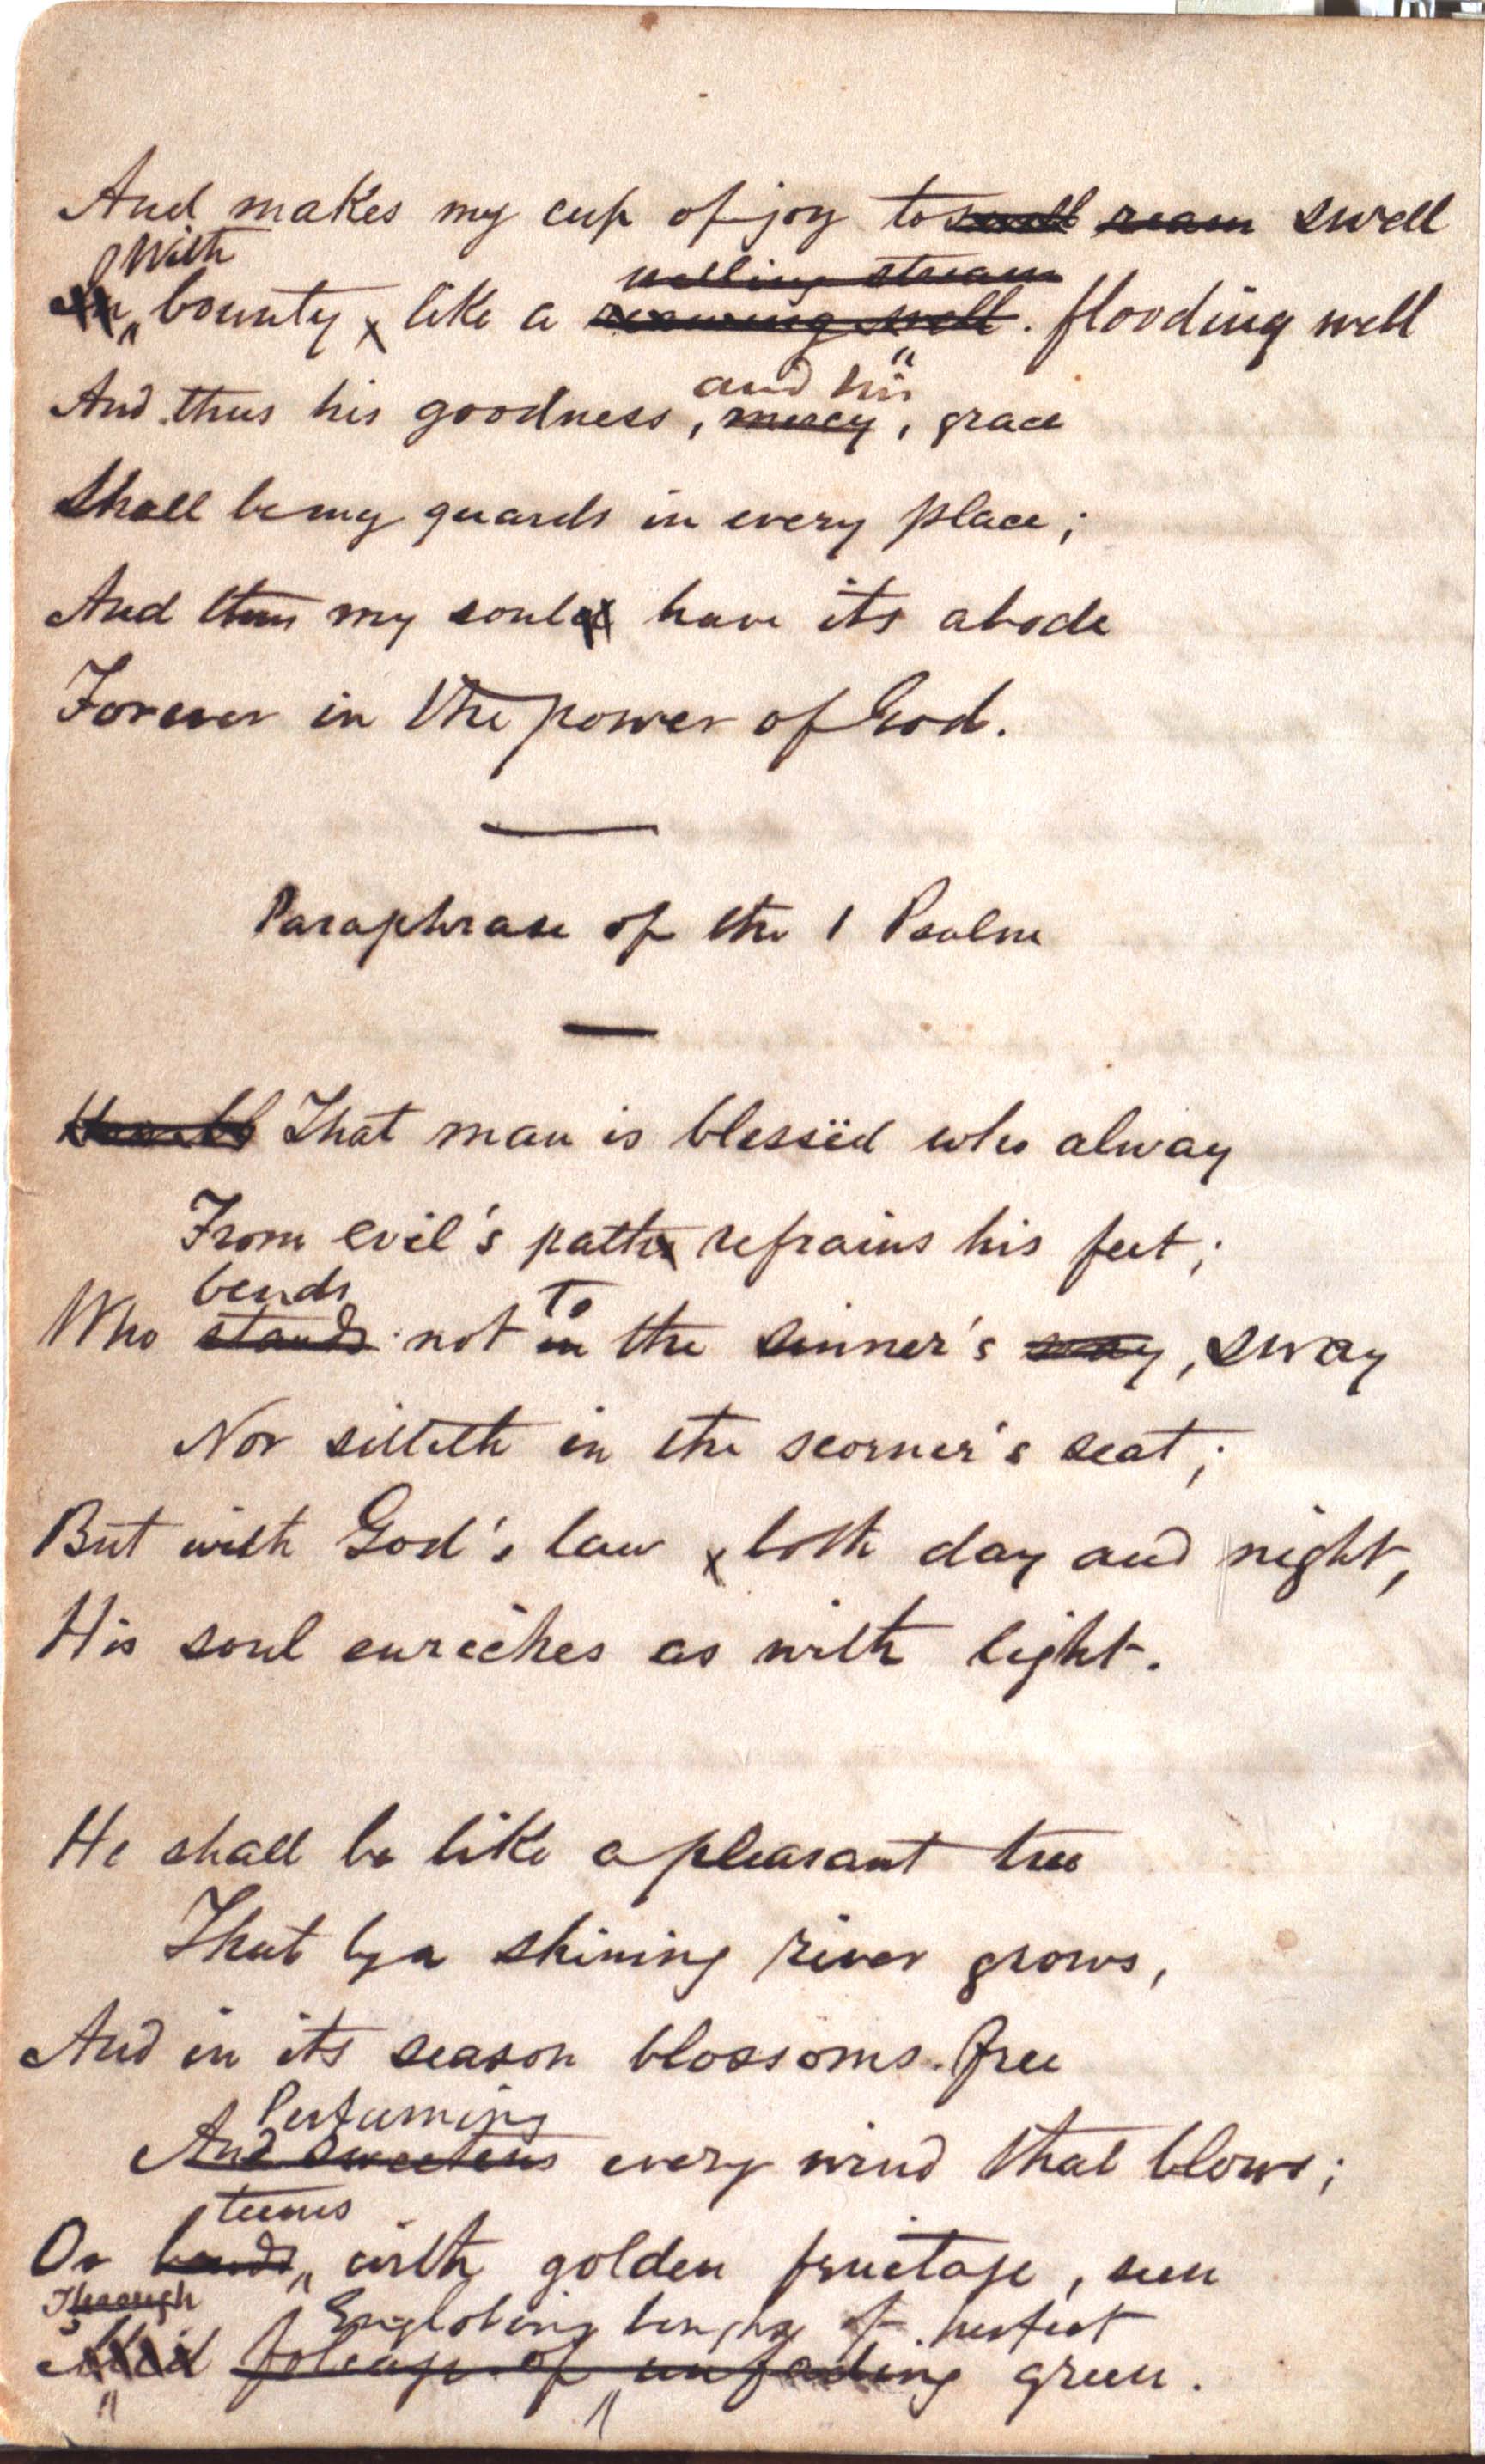 And makes my cup of joy to swell ream swell
With
In bounty, like a
welling stream
renewing well. flooding well
and his
And thus his goodness, mercy, grace
Shall be my guards in every place;
And thus my soul have its abode
Forever in the power of God.
Paraphrase of the 1 Psalm
That man is blessëd who alway
From evil's path refrains his feet;
bends To
Who stands not in the sinner's way, sway
Nor sitteth in the scorner's seat;
But with God's law both day and night,
His soul enriches as with light.
He shall be like a pleasant tree
That by a shining river grows,
And in its season blossoms free
Perfuming
And sweetens every wind that blows;
teems
Or bends with golden fruitage, seen
Through Englobing boughs of perfect
Mid foliage of unfading green.